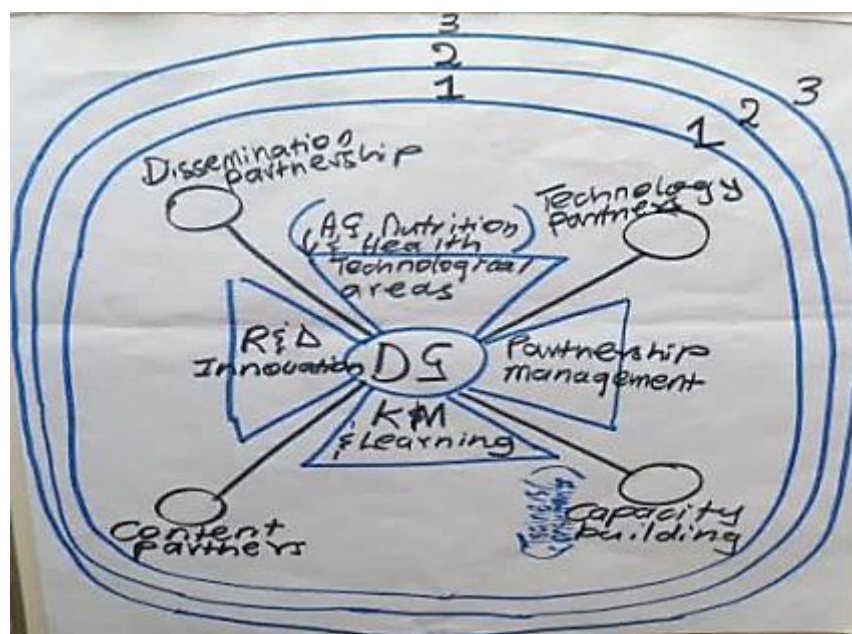 3
2
1
3
2
1
Dissemination
partnership
Technology
partners
(AG, Nutrition)
& Health
Technological
areas
R&D
Innovation
DG
Partnership
management
KM
& Learning
Content
partners
Capacity
building